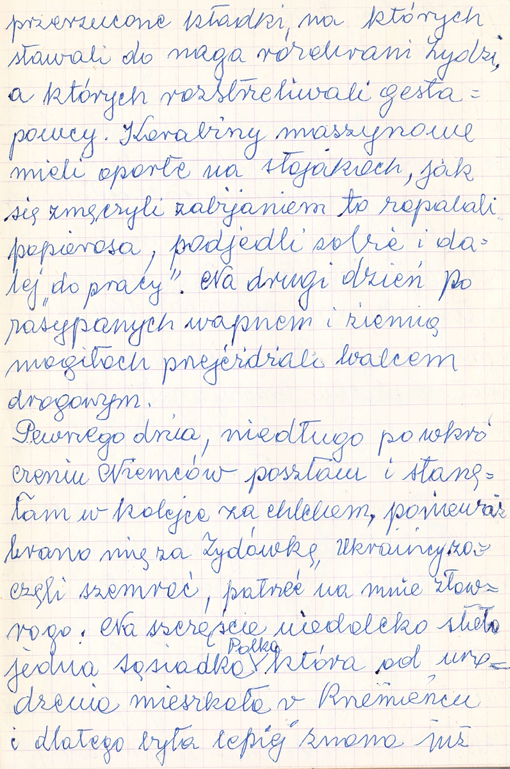 przerzucone kładki, na których
stawali do naga rozebrani żydzi,
a których rozstrzeliwali gesta=
powcy. Karabiny maszynowe
mieli oparte na stojakach, jak
się zmęczyli zabijaniem to zapalali
papierosa, podjedli sobie i da=
lej „do pracy”. Na drugi dzień po
zasypanych wapnem i ziemią
mogiłach przejeżdżali walcem
drogowym.
Pewnego dnia, niedługo po wkro
czeniu Niemców poszłam i stanę=
łam w kolejce za chlebem, ponieważ
brano mię za Żydówkę, Ukraińcy za=
częli szemrać, patrzeć na mnie złow=
rogo. Na szczęście niedaleko stała
jedna sąsiadka Polka, która od uro=
dzenia mieszkała w Krzemieńcu
i dlatego była lepiej znana już